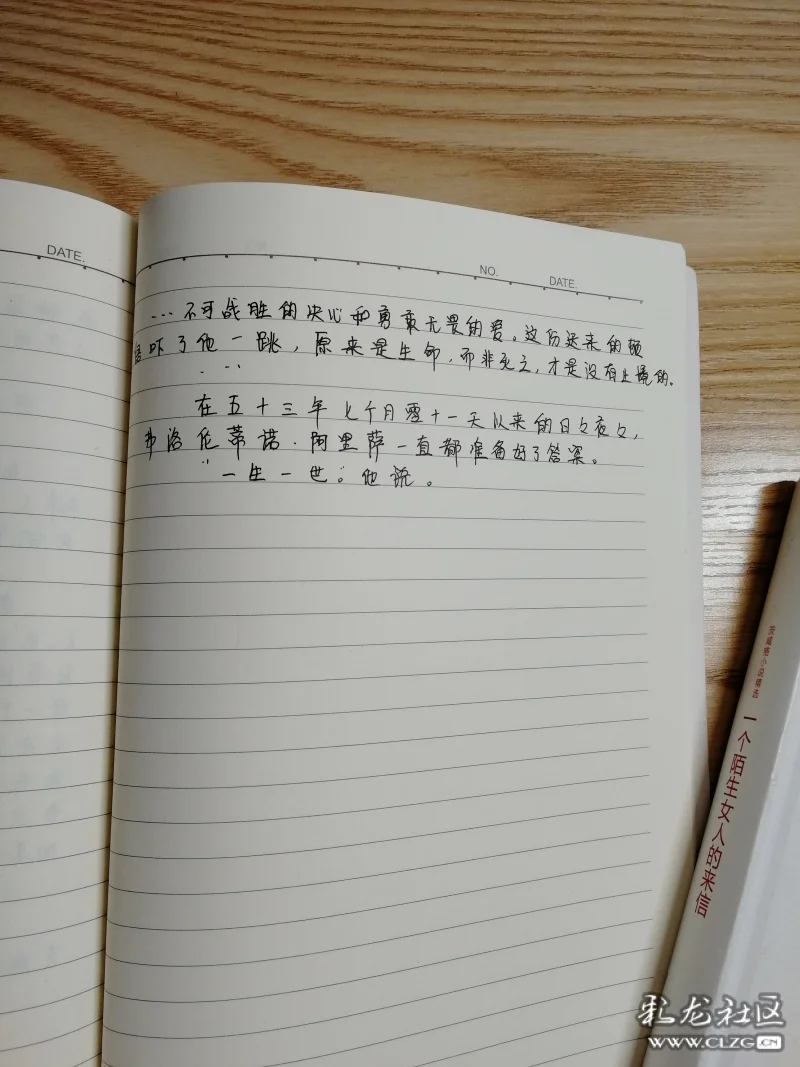 DATE.
NO.
DATE.
…不可战胜的决心和勇敢无畏的爱。这份迟来的顿
悟吓了他一跳，原来是生命，而非死亡，才是没有止境的。
...
在五十三年七个月零十一天以来的日々夜々，
弗洛伦蒂诺·阿里萨一直都准备好了答案。
"一生一世。"他说。
茨威格小说精选
一个陌生女人的来信
彩龙社区
www.CLZG.CN